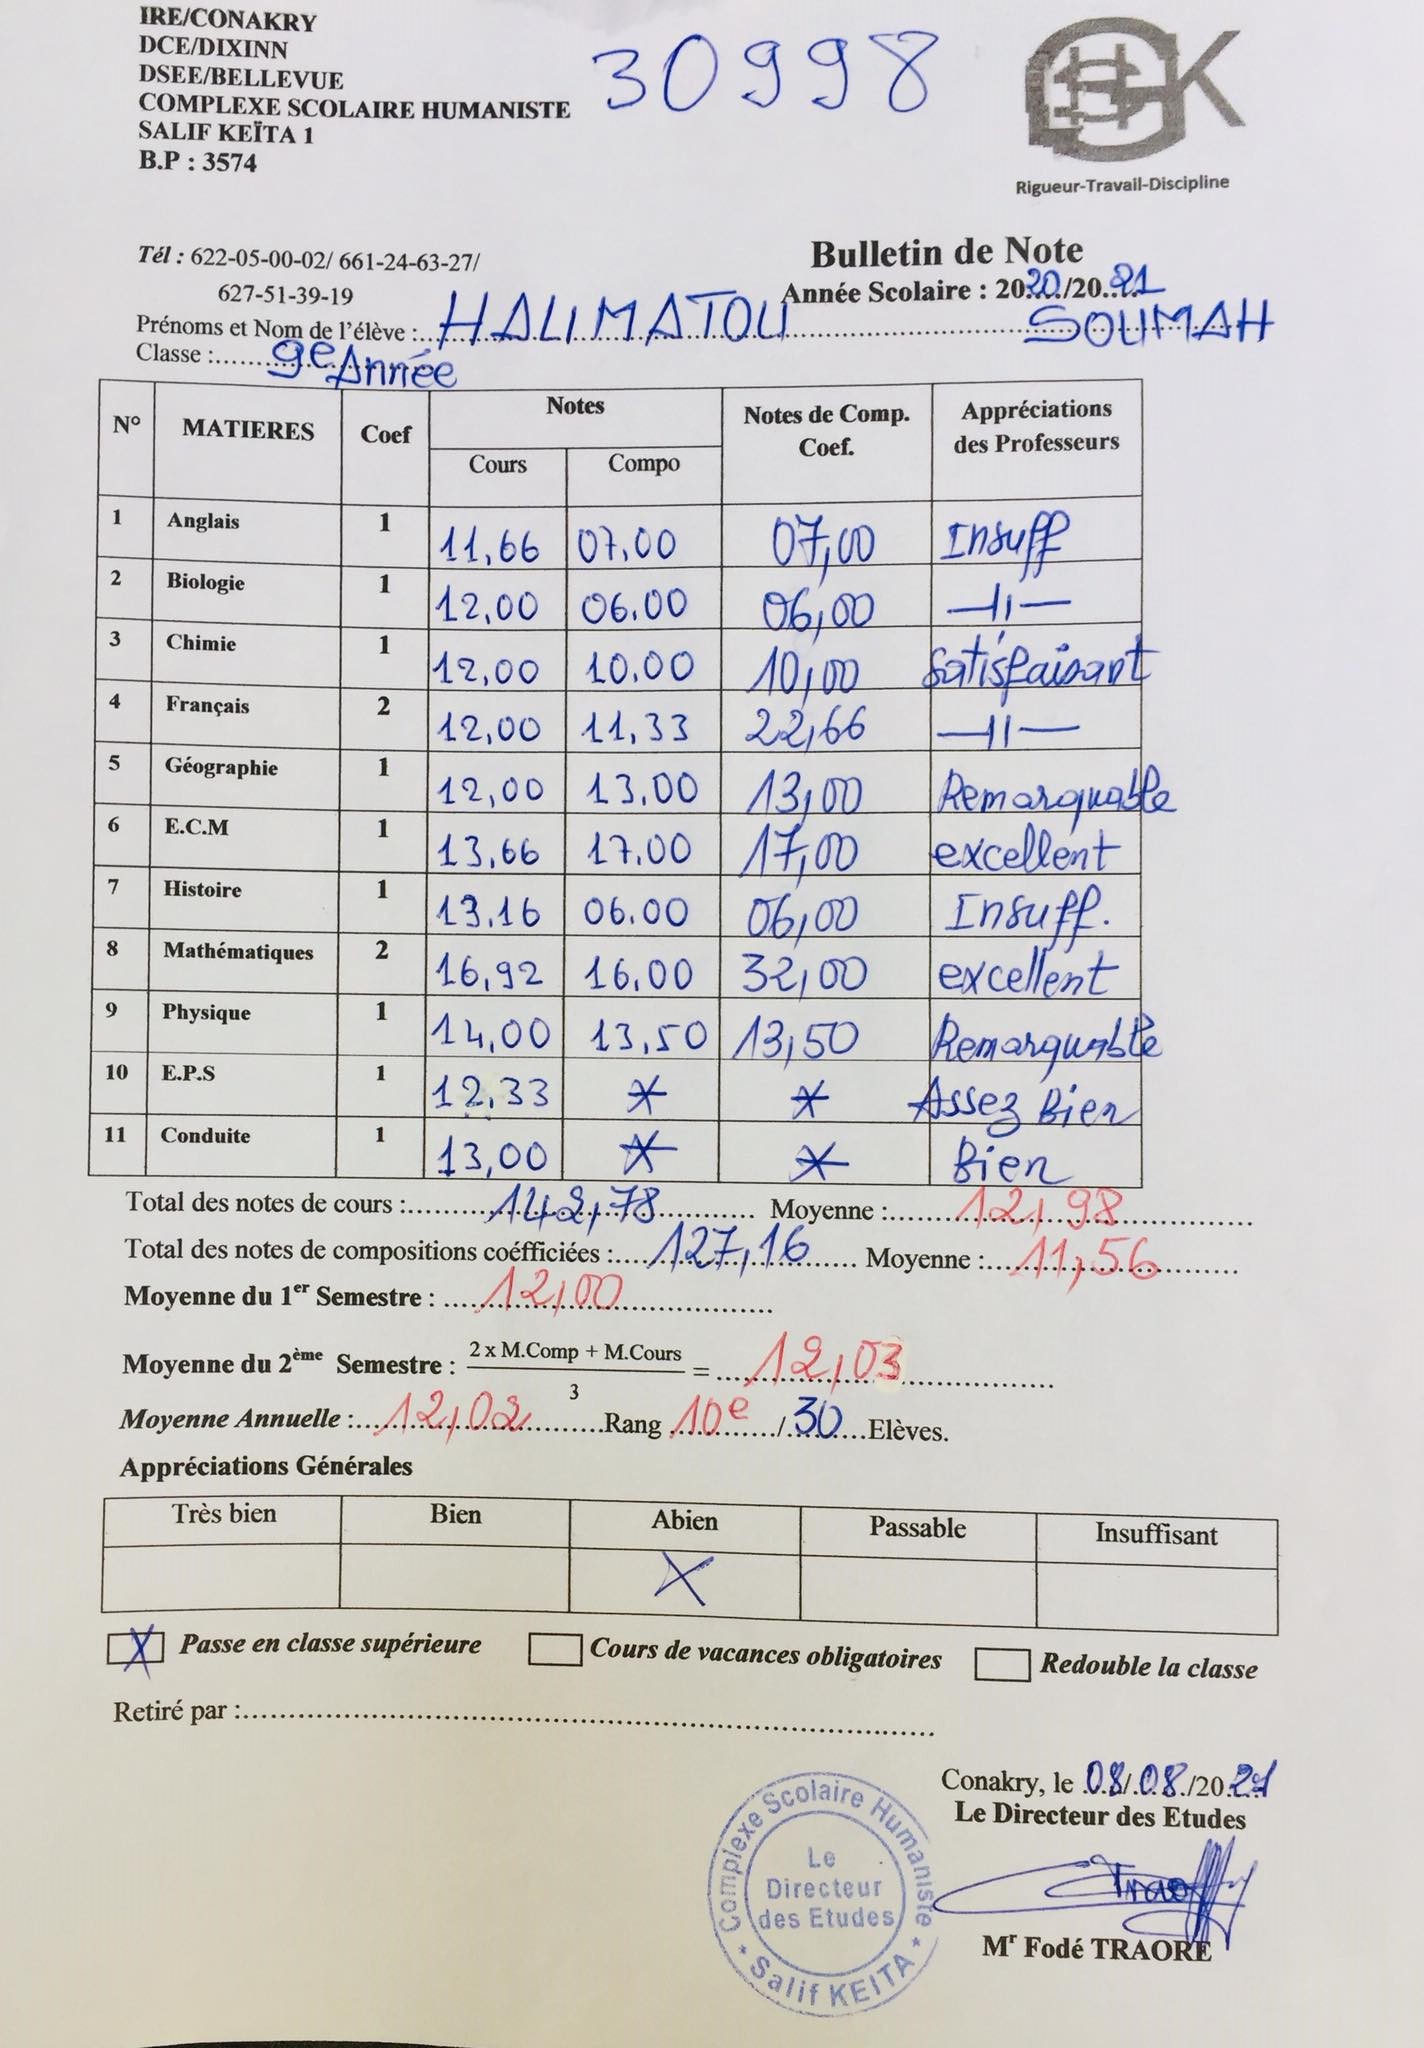 IRE/CONAKRY
DCE/DIXINN
DSEE/BELLEVUE
COMPLEXE SCOLAIRE HUMANISTE
SALIF KEÏTA 1
B.P : 3574
30998
Rigueur-Travail-Discipline
Tél : 622-05-00-02/ 661-24-63-27/
627-51-39-19
Bulletin de Note
Année Scolaire : 2020/2021
Prénoms et Nom de l'élève : HALIMATOU SOUMAH
Classe : 9e Année
N° MATIERES Coef Notes Notes de Comp. Coef. Appréciations des Professeurs
Cours Compo
1 Anglais 1 11,66 07.00 07,00 Insuff
2 Biologie 1 12,00 06.00 06,00 —II—
3 Chimie 1 12,00 10.00 10,00 Satisfaisant
4 Français 2 12,00 11,33 22,66 —II—
5 Géographie 1 12,00 13.00 13,00 Remarquable
6 E.C.M 1 13,66 17.00 17,00 excellent
7 Histoire 1 13,16 06.00 06,00 Insuff.
8 Mathématiques 2 16,92 16.00 32,00 excellent
9 Physique 1 14,00 13,50 13,50 Remarquable
10 E.P.S 1 12,33 * * Assez Bien
11 Conduite 1 13,00 * * Bien
Total des notes de cours : 142,78 Moyenne : 12,98
Total des notes de compositions coéfficiées : 127,16 Moyenne : 11,56
Moyenne du 1er Semestre : 12,00
Moyenne du 2ème Semestre : 2 x M.Comp + M.Cours / 3 = 12,03
Moyenne Annuelle : 12,02 Rang 10e / 30 Elèves.
Appréciations Générales
Très bien Bien Abien Passable Insuffisant
X
X Passe en classe supérieure Cours de vacances obligatoires Redouble la classe
Retiré par :
Conakry, le 08/08/2021
Le Directeur des Etudes
Complexe Scolaire Humaniste
Le
Directeur
des Etudes
* Salif KEITA *
Mr Fodé TRAORE